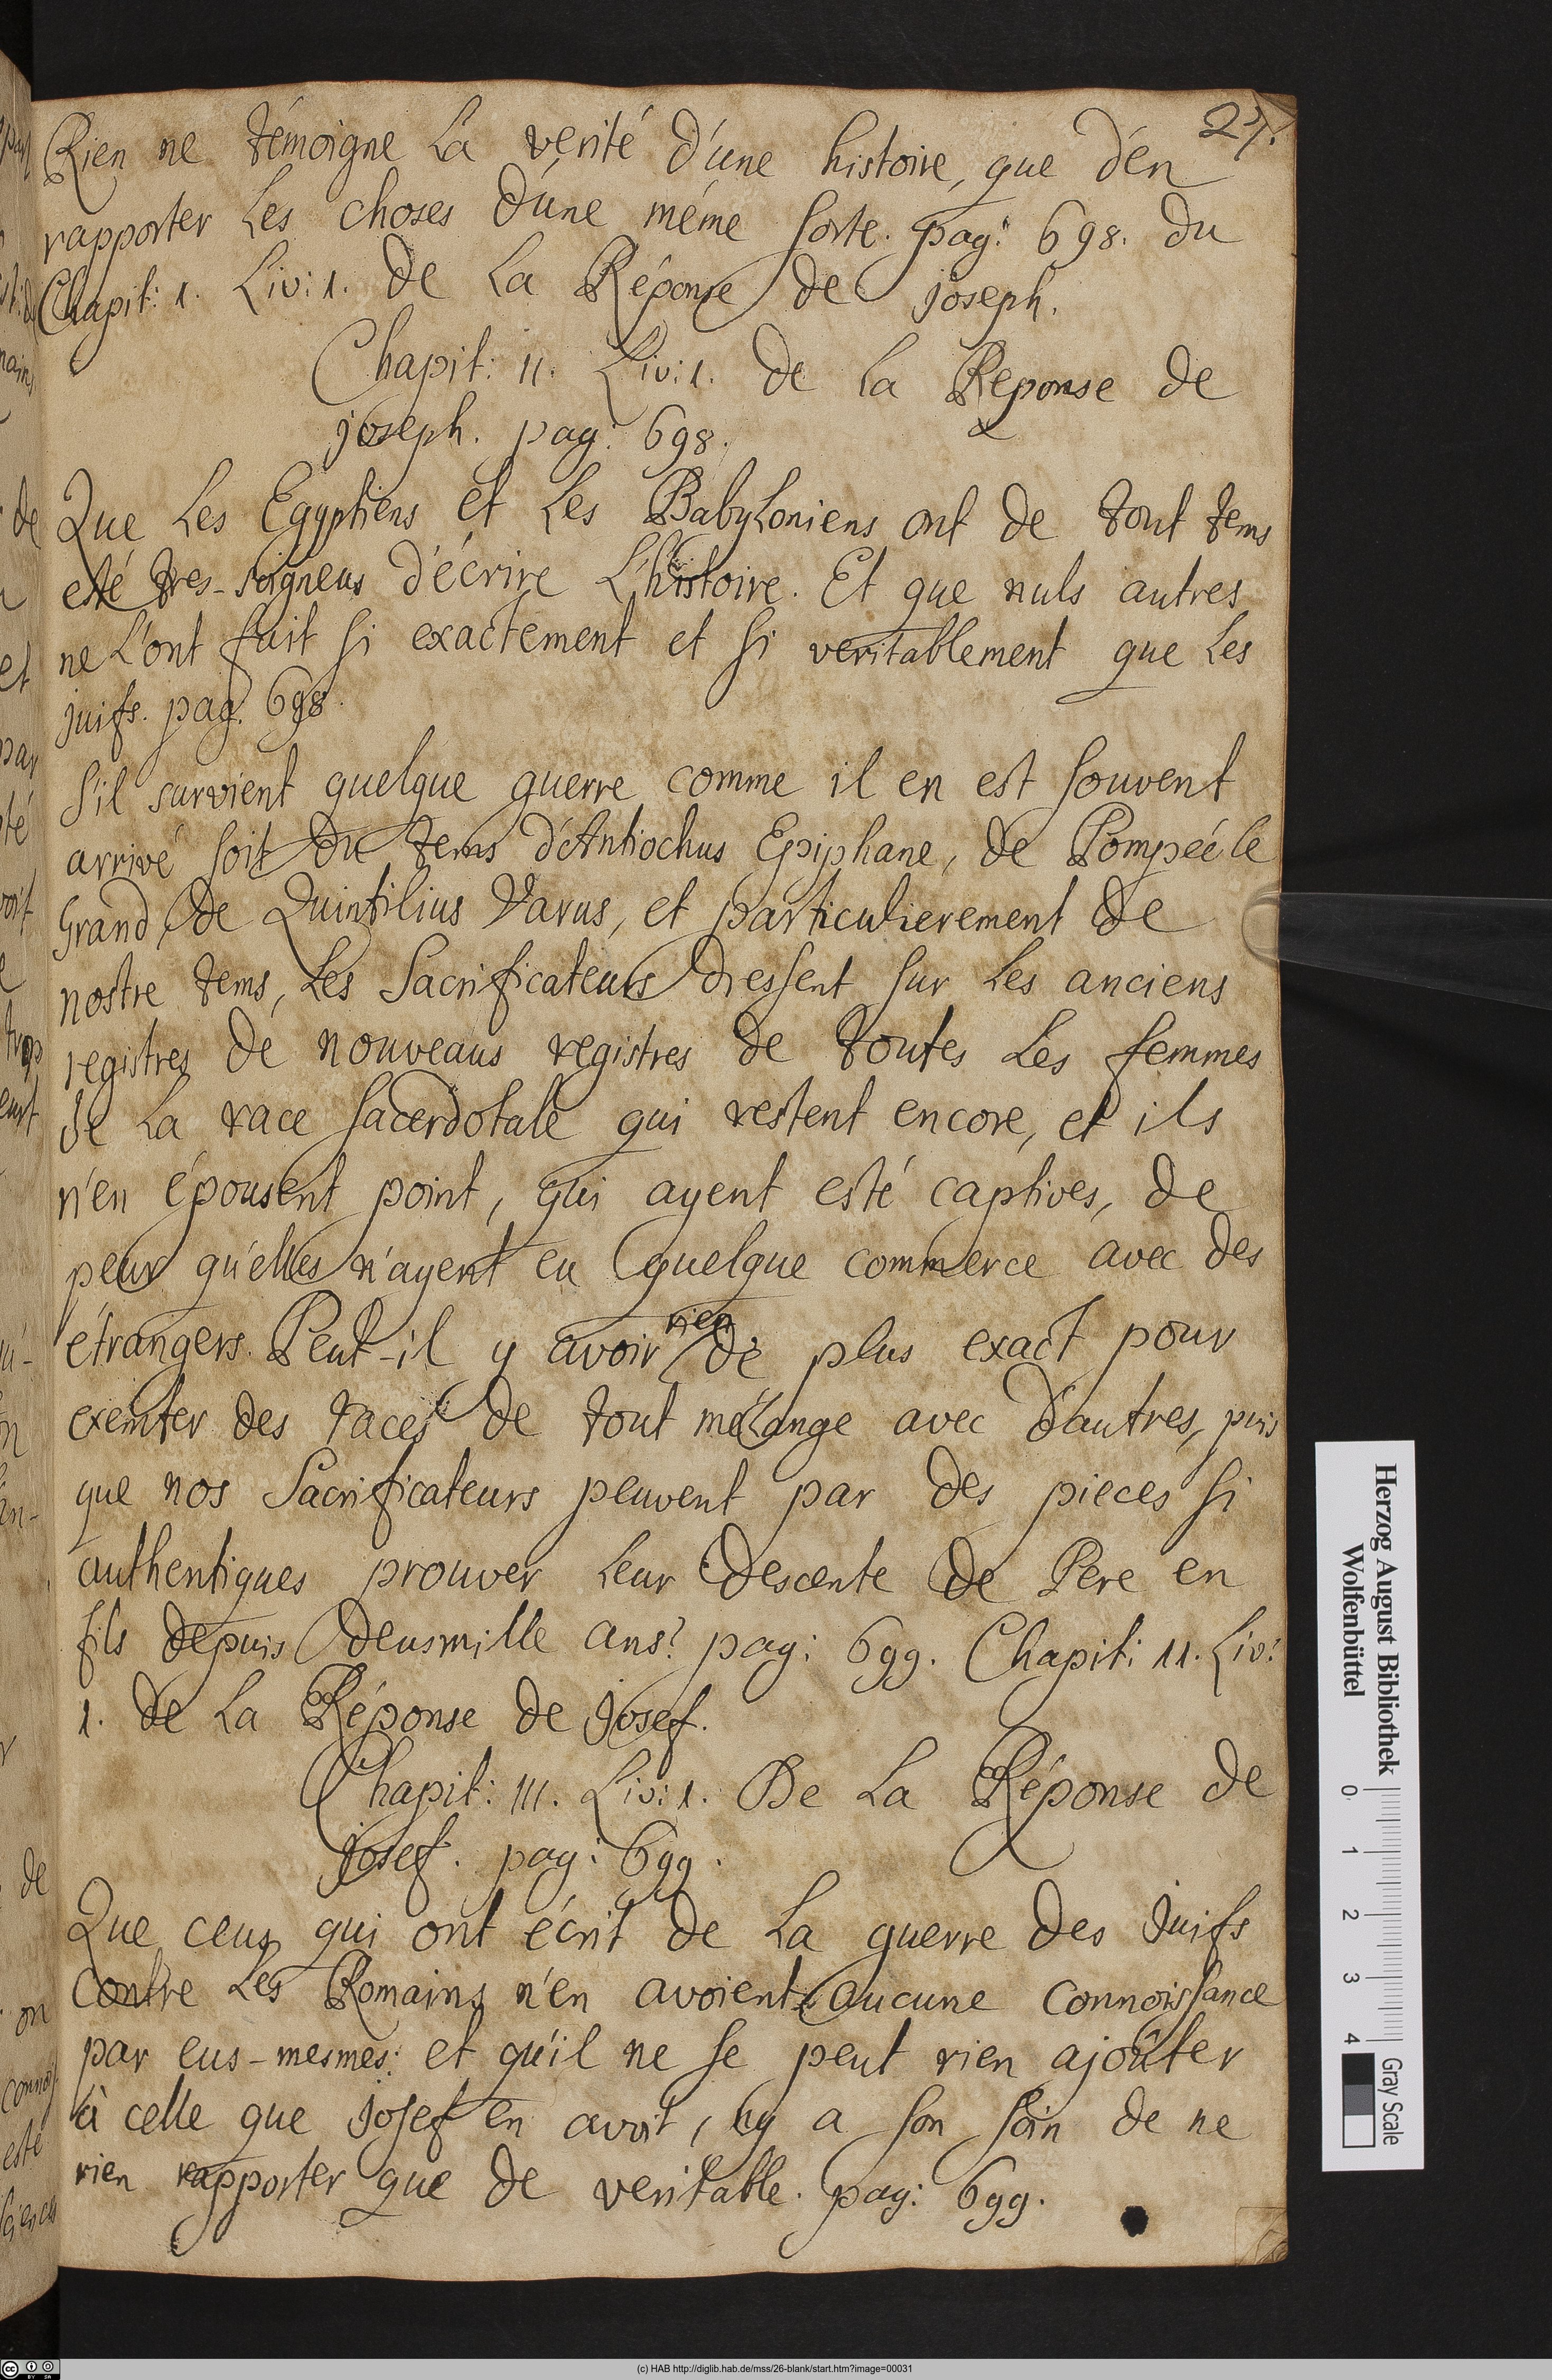 27.
Rien ne témoigne La verité d'une histoire, que d'en
rapporter Les choses d'une méme sorte. pag: 698. du
Chapit: 1. Liv: 1. de La Réponse de joseph.
Chapit: 11. Liv: 1. de La Reponse de
joseph. pag: 698.
Que Les Egyptiens et Les BabyLoniens ont de tout tems
esté tres-soigneus d'écrire L'histoire. Et que nuls autres
ne L'ont fait si exactement et si veritablement que Les
juifs. pag. 698.
S'il survient quelque guerre comme il en est souvent
arrivé soit du tems d'Antiochus Epiphane, de Pompée le
Grand, de Quintilius Varus, et particulierement de
nostre tems, Les Sacrificateurs dressent sur Les anciens
registres de nouveaus registres de toutes Les femmes
de La race sacerdotale qui restent encore, et ils
n'en épousent point, qui ayent esté captives, de
peur qu'elles n'ayent eu quelque commerce avec des
étrangers. Peut-il y avoir rien de plus exact pour
exemter des races de tout méLange avec d'autres, puis
que nos Sacrificateurs peuvent par des pieces si
authentiques prouver Leur descente de Pere en
fils depuis deusmille ans? pag: 699. Chapit: 11. Liv:
1. de La Réponse de Josef.
Chapit: 111. Liv: 1. De La Réponse de
Josef. pag: 699.
Que ceus qui ont écrit de La guerre des Juifs
contre Les Romains n'en avoient aucune connoissance
par eus-mesmes: et qu'il ne se peut rien ajoûter
à celle que Josef en avoit, ny a son soin de ne
rien rapporter que de veritable. pag: 699.
Herzog August Bibliothek
Wolfenbüttel
0 1 2 3 4
Gray Scale
(c) HAB http://diglib.hab.de/mss/26-blank/start.htm?image=00031